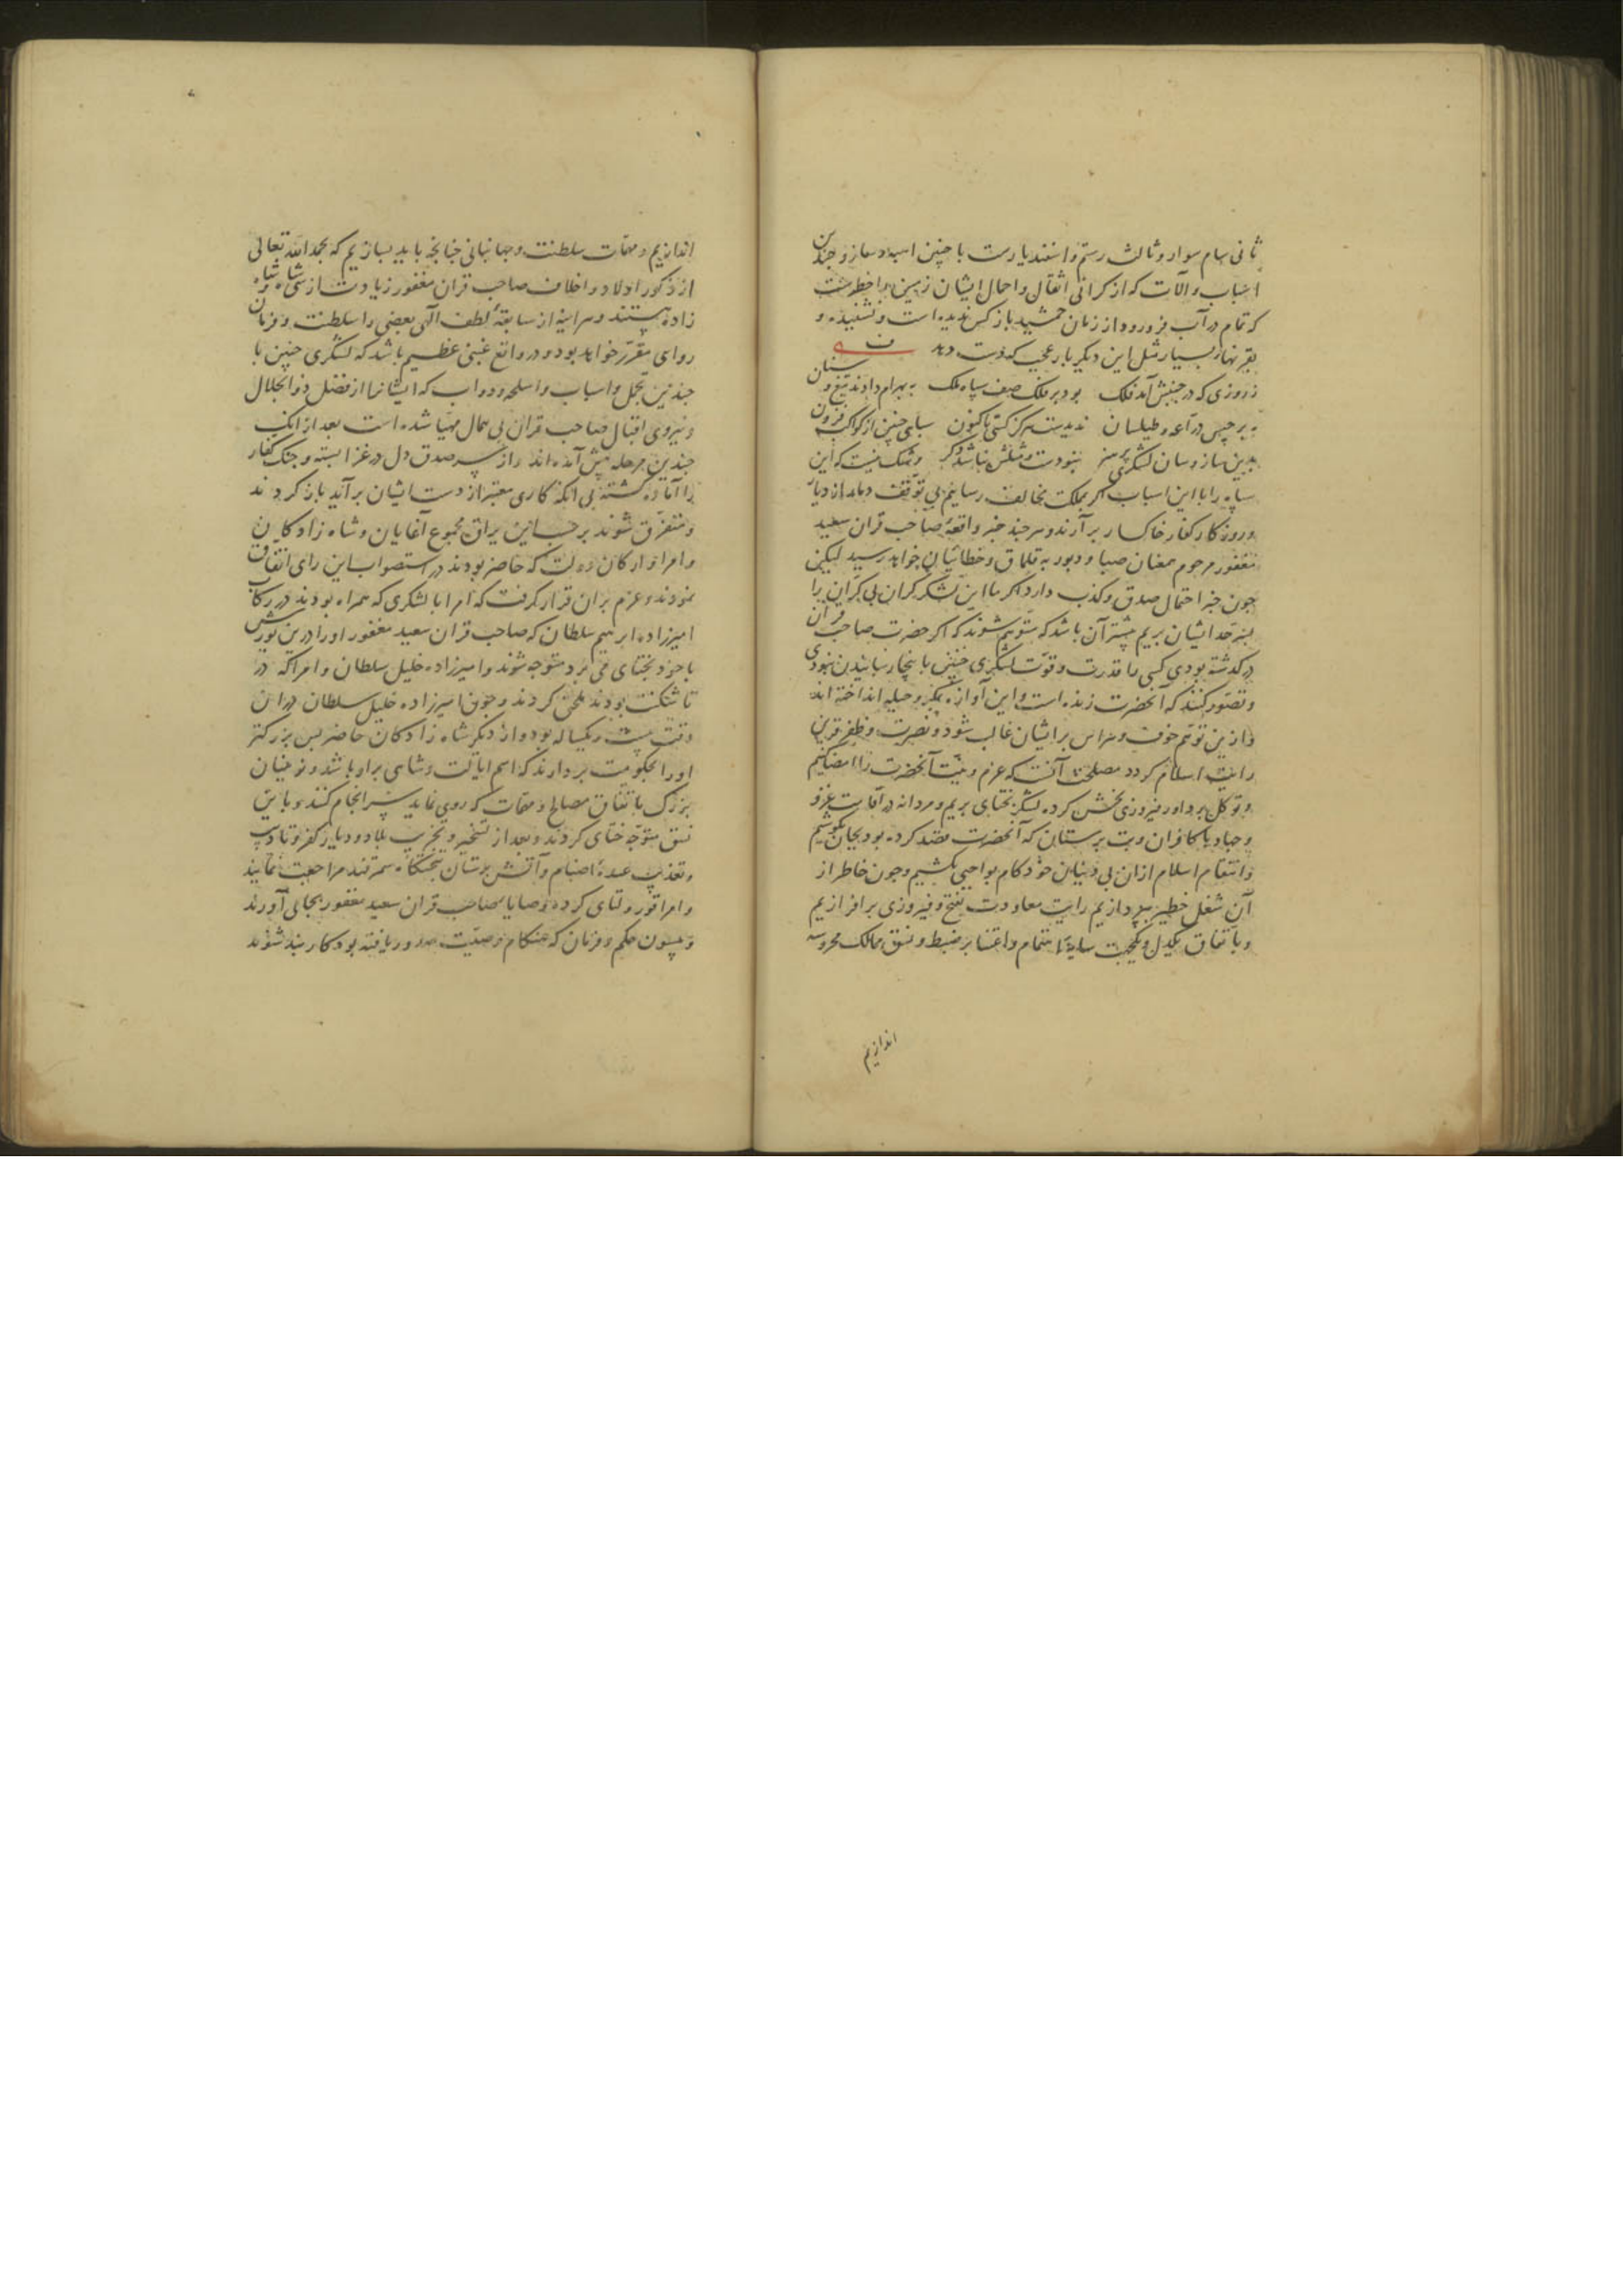 ثانی سام سوار و ثالث رستم و اسفندیارست با چنین اسبه و ساز و چندین
اسباب و آلات که از کرانی اثقال و احمال ایشان زمین را خطرست
که تمام در آب فرو رود از زمان جمشید باز کس ندیده است و نشنیده و
بقرنها بسیار مثل این دیکر بار عجب که دست دهد
ز روزی که در جنبش آمد فلک بود بر فلک صف سپاه ملک به بهرام دادند تیغ و سنان
به برجیس دراعه و طیلسان ندیدست هرکز کسی تاکنون سپاهی چنین از کواکب فزون
بدین ساز و سان لشکری پر هنر نبودست و مثلش نباشد دکر و شک نیست که این
سپاه را با این اسباب اکر بملکت مخالف رسانیم بی توقف دمار از دیار
و روزکار کفار خاکسار برآرند و هر چند خبر واقعه صاحب قران سعید
مغفور مرحوم صبا و دبور به قلماق و خطائیان خواهد رسید لیکن
چون خبر احتمال صدق و کذب دارد اکر ما این لشکر کران بی کران را
بسرحد ایشان بریم بیشتر آن باشد که متوهم شوند که اکر حضرت صاحب قران
درکذشته بودی کسی را قدرت و قوت لشکری چنین باینجا رسانیدن نبودی
و تصور کنند که آنحضرت زنده است و این آوازه بمکر و حیله انداخته اند
و ازین توهم خوف و هراس بر ایشان غالب شود و نصرت و ظفر قرین
رایت اسلام کردد مصلحت آنست که عزم و نیت آنحضرت را امضا کنیم
و توکل بر داور فیروزی بخش کرده لشکر بختای بریم و مردانه در اقامت غزو
و جهاد با کافران و بت پرستان که آنحضرت قصد کرده بود بجان بکوشیم
و انتقام اسلام از ان بی دینان خودکام بواجبی بکشیم و چون خاطر از
آن شغل خطیر بپردازیم رایت معاودت بفتح و فیروزی برافرازیم
و باتفاق یکدل و یکجهت سایه اهتمام و اعتنا بر ضبط و نسق ممالک محروسه
اندازیم
اندازیم و مهمات سلطنت و جهانبانی چنانچه باید بسازیم که بحمد الله تعالی
از ذکور اولاد و اخلاف صاحب قران مغفور زیادت از سی شاه و شاه
زاده هستند و هر آینه از سابقه لطف الهی بعضی را سلطنت و فرمان
روای مقرر خواهد بود و در واقع غبنی عظیم باشد که لشکری چنین با
چندین تجمل و اسباب و اسلحه و دواب که ایشانرا از فضل ذو الجلال
و نیروی اقبال صاحب قران بی همال مهیا شده است بعد از انک
چندین مرحله پیش آمده اند و از سر صدق دل در غزا بسته و جنک کفار
را آماده کشته بی انکه کاری معتبر از دست ایشان برآید باز کردند
و متفرق شوند برحسب این یراق مجموع آغایان و شاه زادکان
و امرا و ارکان دولت که حاضر بودند در استصواب این رای اتفاق
نمودند و عزم بران قرار کرفت که امرا با لشکری که همراه بودند در رکاب
امیرزاده ابرهیم سلطان که صاحب قران سعید مغفور او را درین یورش
با خود بختای می برد متوجه شوند و امیرزاده خلیل سلطان و امرا که در
تاشکنت بودند ملحق کردند و چون امیرزاده خلیل سلطان در ان
وقت بیست و یکساله بود و از دیکر شاه زادکان حاضر بسن بزرکتر
او را بحکومت بردارند که اسم ایالت و شاهی بر او باشد و نوینان
بزرک باتفاق مصالح و مهمات که روی نماید سرانجام کنند و باین
نسق متوجه ختای کردند و بعد از تسخیر و تخریب بلاد و دیار کفر و تادیب
و تعذیب عبده اصنام و آتش پرستان بتختکاه سمرقند مراجعت نمایند
و امرا قورولتای کرده وصایا صاحب قران سعید مغفور بجای آورند
و بمضمون حکم و فرمان که هنکام وصیت صدور یافته بود کاربند شوند